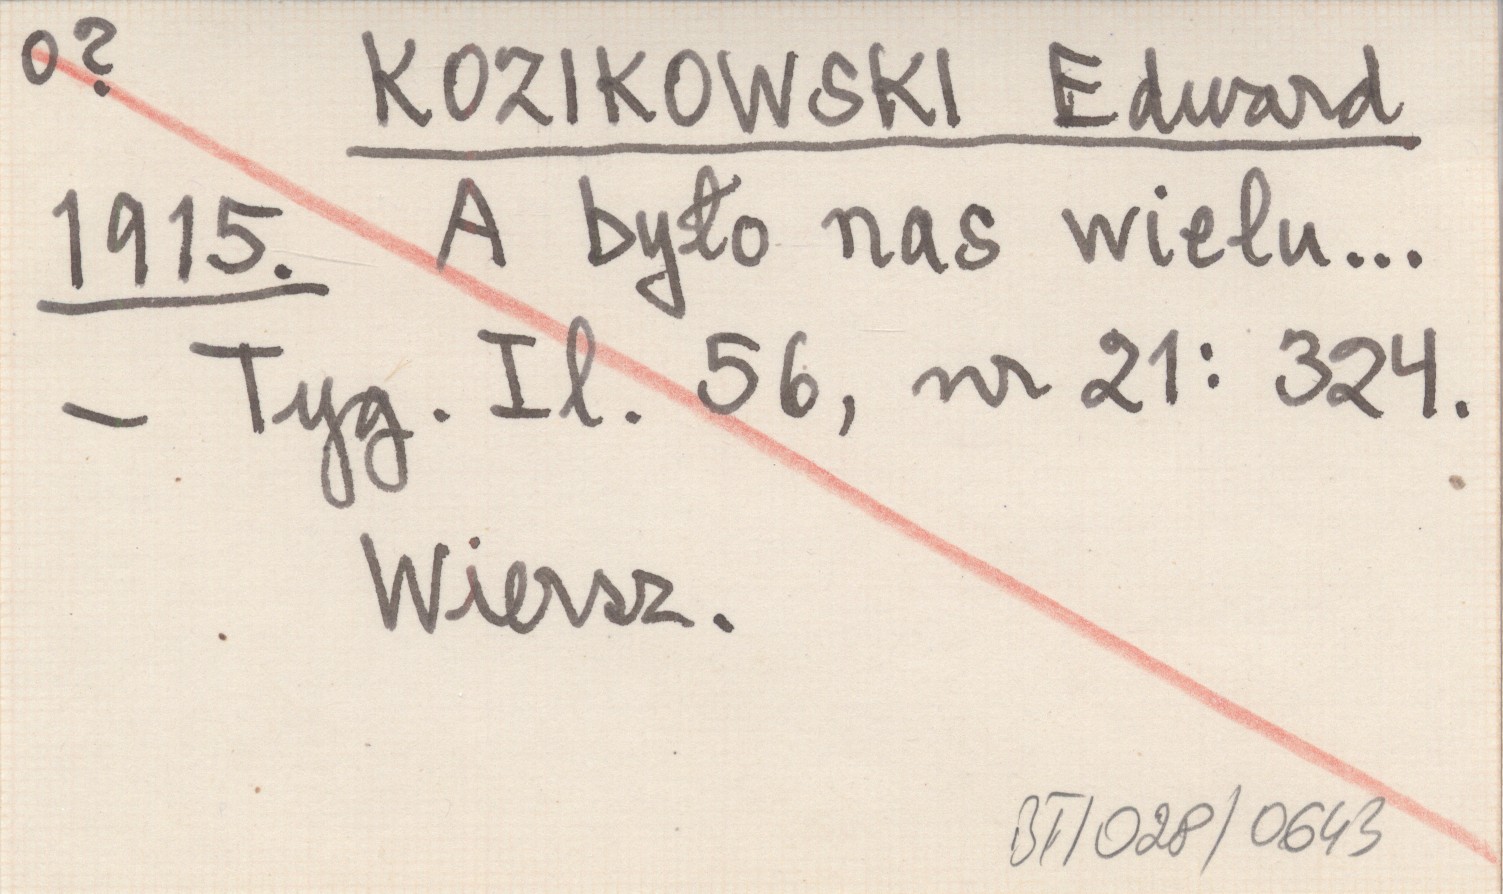 o?
KOZIKOWSKI Edward
1915. A było nas wielu...
– Tyg. Il. 56, nr 21: 324.
Wiersz.
BT/028/0643